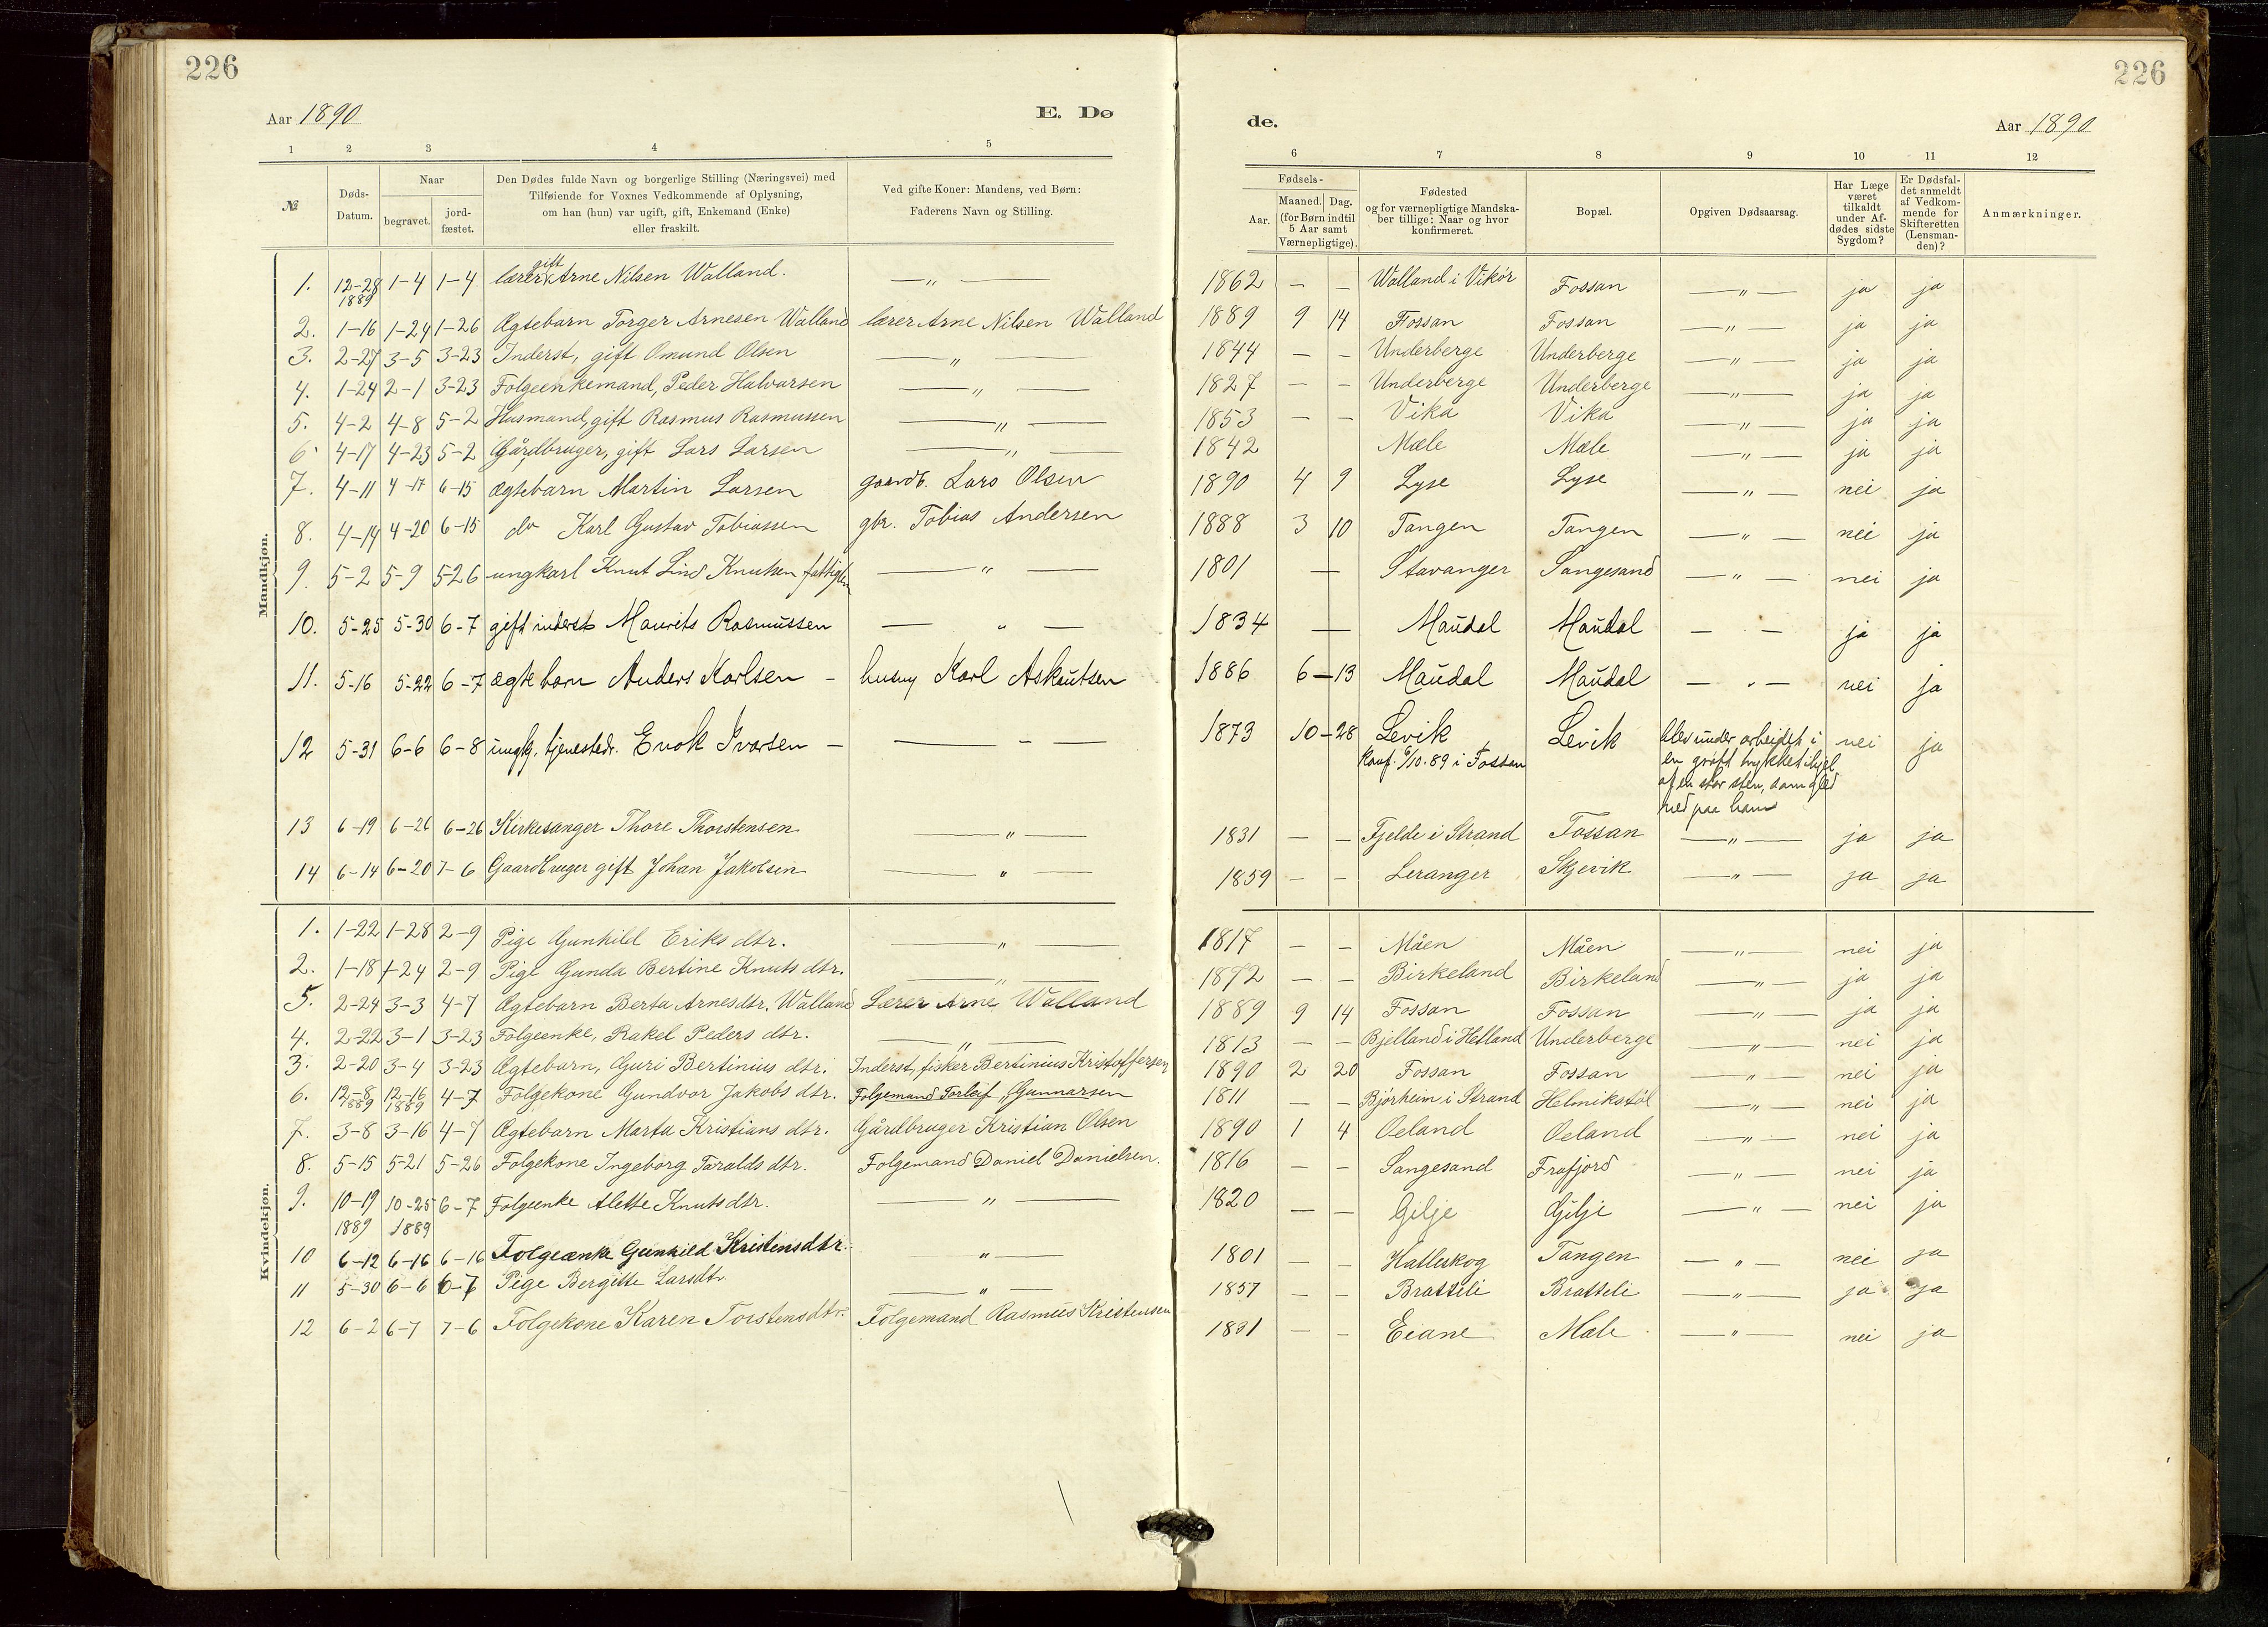 226
226
Aar 1890
E. Dø
de.
Aar 1890
1 2 3 4 5
6 7 8 9 10 11 12
№
Døds-
Datum.
Naar
begravet.
jord-
fæstet.
Den Dødes fulde Navn og borgerlige Stilling (Næringsvei) med
Tilføiende for Voxnes Vedkommende af Oplysning,
om han (hun) var ugift, gift, Enkemand (Enke)
eller fraskilt.
Ved gifte Koner: Mandens, ved Børn:
Faderens Navn og Stilling.
Fødsels-
Aar.
Maaned. Dag.
(for Børn indtil
5 Aar samt
Værnepligtige).
Fødested
og for værnepligtige Mandska-
ber tillige: Naar og hvor
konfirmeret.
Bopæl.
Opgiven Dødsaarsag.
Har Læge
været
tilkaldt
under Af-
dødes sidste
Sygdom?
Er Dødsfal-
det anmeldt
af Vedkom-
mende for
Skifteretten
(Lensman-
den)?
Anmærkninger.
Mandkjøn.
gift
1. 12-28 1-4 1-4 lærer Arne Nilsen Walland. —„— 1862 — — Walland i Vikør Fossan —„— ja ja
1889
2. 1-16 1-24 1-26 Ægtebarn Torger Arnesen Walland lærer Arne Nilsen Walland 1889 9 14 Fossan Fossan —„— ja ja
3. 2-27 3-5 3-23 Inderst, gift Omund Olsen —„— 1844 — — Underberge Underberge —„— ja ja
4. 1-24 2-1 3-23 Folgeenkemand, Peder Halvarsen —„— 1827 — — Underberge Underberge —„— ja ja
5. 4-2 4-8 5-2 Husmand, gift Rasmus Rasmussen —„— 1853 — — Vika Vika —„— ja ja
6 4-17 4-23 5-2 Gårdbruger, gift Lars Larsen —„— 1842 Mæle Mæle —„— ja ja
7. 4-11 4-17 6-15 Ægtebarn Martin Larsen gaardb. Lars Olsen 1890 4 9 Lyse Lyse —„— nei ja
8. 4-14 4-20 6-15 do Karl Gustav Tobiassen gbr. Tobias Andersen 1888 3 10 Tangen Tangen —„— nei ja
9. 5-2 5-9 5-26 ungkarl Knut Lind Knutsen fattiglem —„— 1801 — Stavanger Sangesand —„— nei ja
10. 5-25 5-30 6-7 gift inderst Maurits Rasmussen —„— 1834 — Maudal Maudal —„— ja ja
11. 5-16 5-22 6-7 ægtebarn Anders Karlsen — husm Karl Askautsen 1886 6-13 Maudal Maudal —„— nei ja
12 5-31 6-6 6-8 ungk. tjenestedr. Enok Ivarsen — — — — 1873 10-28 Levik Levik blev under arbeidet i nei ja
konf. 6/10.89 i Fossan en grøft trykket ihjel
af en stor sten, som gled
ned paa ham
13 6-19 6-26 6-26 Kirkesanger Thore Thorstensen —„— 1831 — — Fjelde i Strand Fossan —„— ja ja
14 6-14 6-20 7-6 Gaardbruger gift Johan Jakobsen —„— 1859 — — Leranger Skjevik —„— ja ja
Kvindekjøn.
1. 1-22 1-28 2-9 Pige Gunhild Eriks dtr. —„— 1817 — — Måen Måen —„— nei ja
2. 1-18 1-24 2-9 Pige Gunda Bertine Knuts dtr. —„— 1872 — — Birkeland Birkeland —„— ja ja
5. 2-24 3-3 4-7 Ægtebarn Berta Arnesdtr. Walland Lærer Arne Walland 1889 9 14 Fossan Fossan —„— ja ja
4. 2-22 3-1 3-23 Folgeenke, Rakel Peders dtr. —„— 1813 — — Bjelland i Helland Underberge —„— nei ja
3. 2-20 3-4 3-23 Ægtebarn, Guri Bertinius dtr. Inderst, fisker Bertinius Kristoffersen 1890 2 20 Fossan Fossan —„— nei ja
6. 12-8 12-16 4-7 Folgekone Gundvor Jakobs dtr. Folgemand Torleif Gunnarsen 1811 — — Bjørheim i Strand Helmikstøl —„— nei ja
1889 1889
7. 3-8 3-16 4-7 Ægtebarn Marta Kristians dtr. Gårdbruger Kristian Olsen 1890 1 4 Oeland Oeland —„— nei ja
8. 5-15 5-21 5-26 Folgekone Ingeborg Taralds dtr. Folgemand Daniel Danielsen. 1816 — — Sangesand Frafjord —„— nei ja
9. 10-19 10-25 6-7 Folgeenke Alette Knutsdtr. —„— 1820 — — Gilje Gilje —„— nei ja
1889 1889
10 6-12 6-16 6-16 Folgeænke Gunhild Kristensdtr. „ — 1801 — — Halleskog Tangen —„— nei ja
11 5-30 6-6 6-7 Pige Bergitte Larsdtr —„— 1857 — — Bratteli Bratteli —„— ja ja
12 6-2 6-7 7-6 Folgekone Karen Torstensdtr. Folgemand Rasmus Kristensen 1831 — — Eiane Mæle —„— nei ja